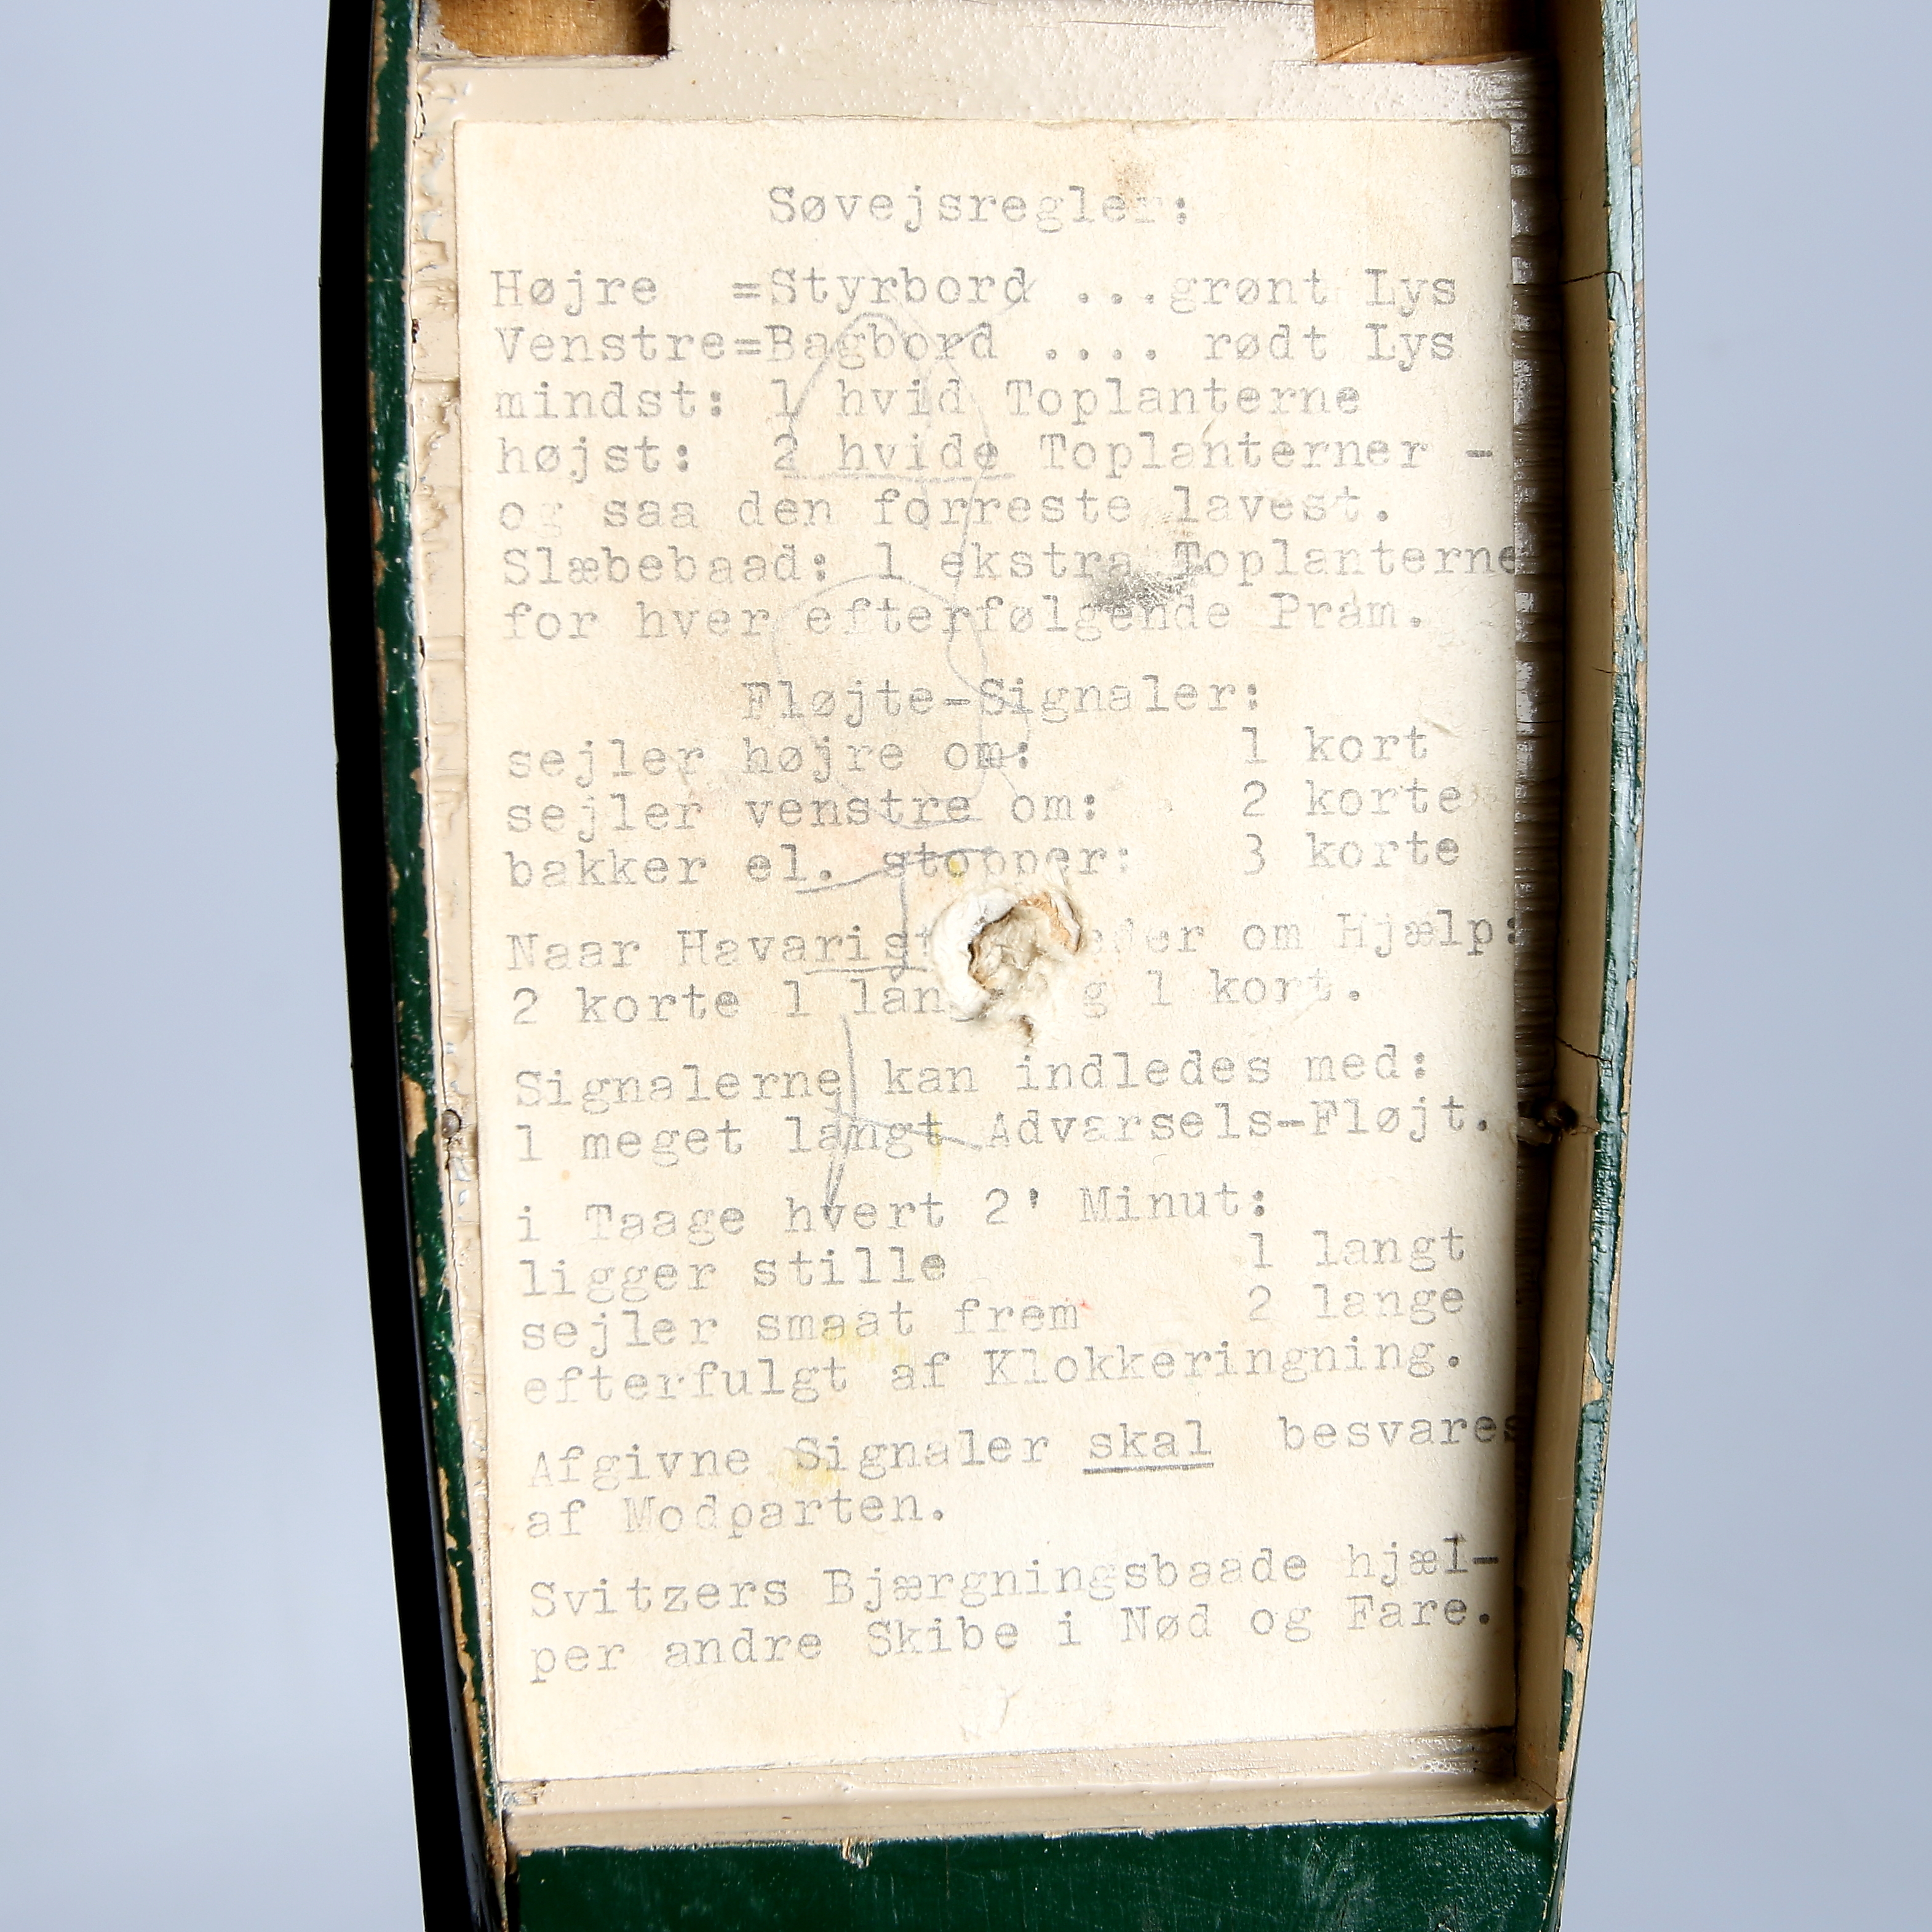 Søvejsregler:
Højre =Styrbord ...grønt Lys
Venstre=Bagbord .... rødt Lys
mindst: 1 hvid Toplanterne
højst: 2 hvide Toplanterner -
og saa den forreste lavest.
Slæbebaad: 1 ekstra Toplanterne
for hver efterfølgende Pram.
Fløjte-Signaler:
sejler højre om: 1 kort
sejler venstre om: 2 korte
bakker el. stopper: 3 korte
Naar Havarist om Hjælp:
2 korte 1 1 kort.
Signalerne kan indledes med:
1 meget langt Advarsels-Fløjt.
i Taage hvert 2' Minut:
ligger stille 1 langt
sejler smaat frem 2 lange
efterfulgt af Klokkeringning.
Afgivne Signaler skal besvares
af Modparten.
Svitzers Bjærgningsbaade hjæl-
per andre Skibe i Nød og Fare.